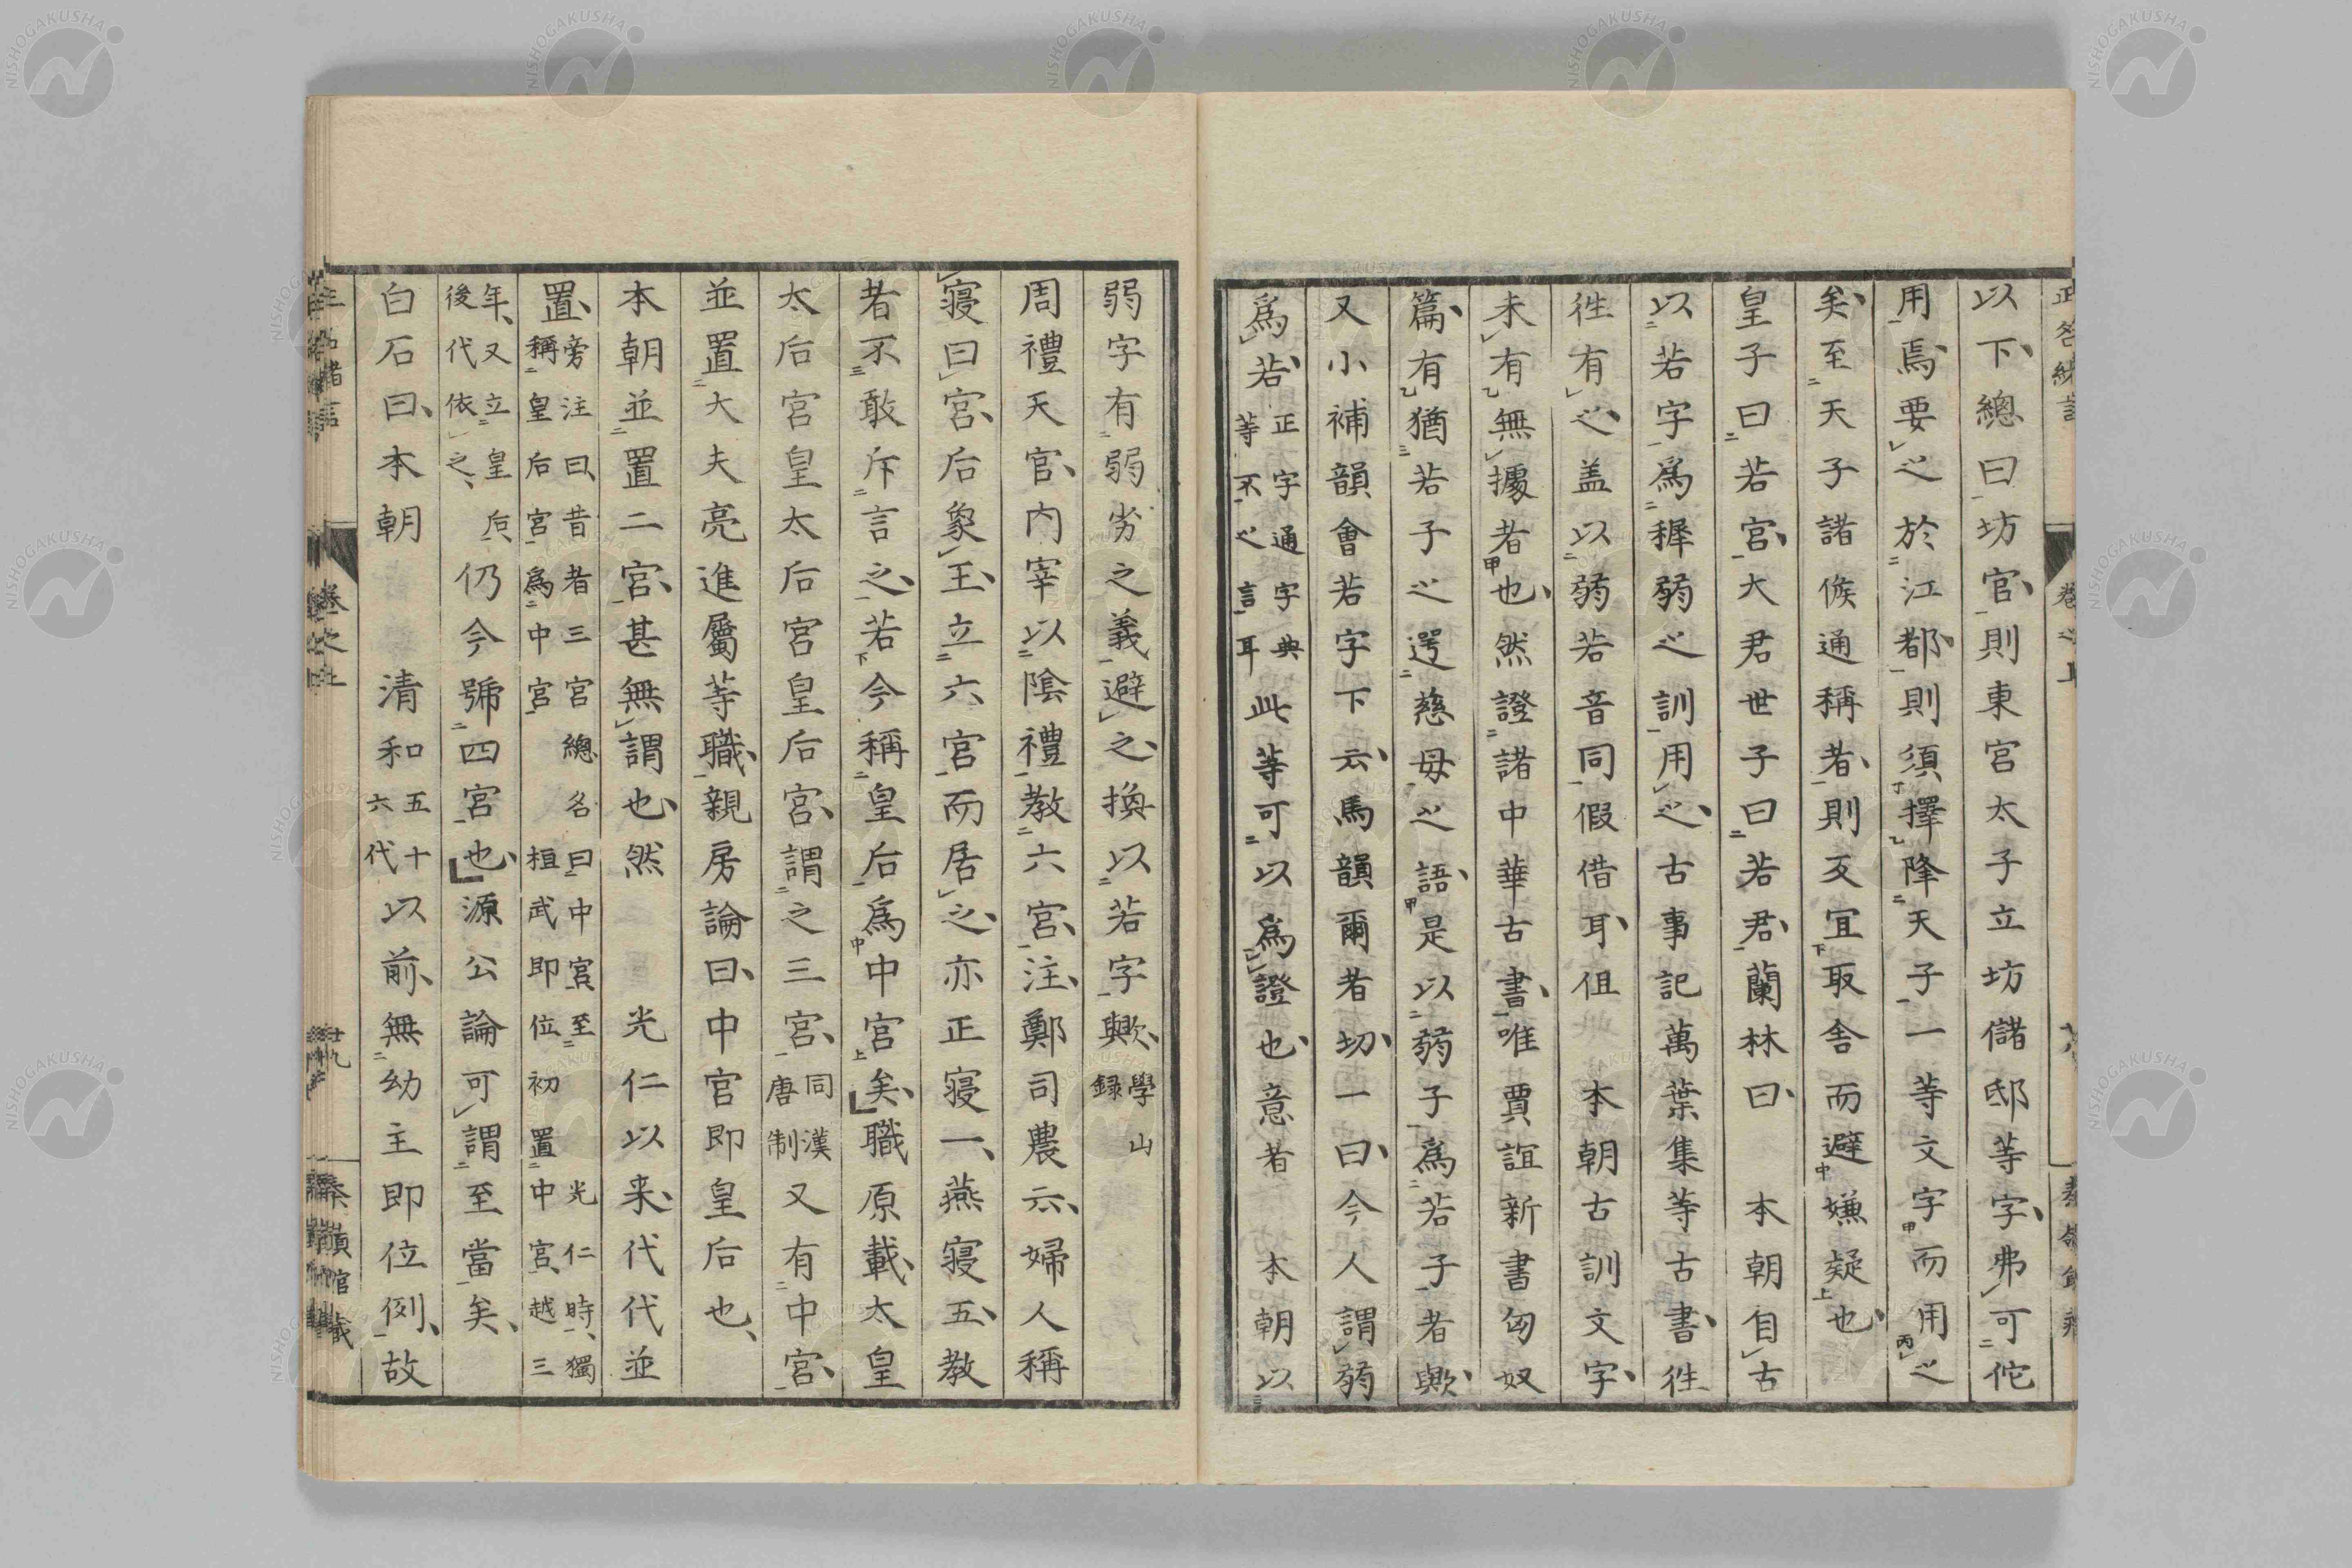 以下、總曰坊官、則東宮太子立坊儲邸等字、弗可佗
用焉、要之於江都、則須擇降天子一等文字而用之
矣、至天子諸侯通稱者、則互宜取舍而避嫌疑也、
皇子曰若宮、大君世子曰若君、蘭林曰、 本朝自古
以若字爲穉弱之訓用之、古事記萬葉集等古書、徃
徃有之、盖以弱若音同假借耳、伹 本朝古訓文字、
未有無據者也、然證諸中華古書、唯賈誼新書匈奴
篇、有猶若子之遌慈母之語、是以弱子爲若子者歟、
又小補韻會若字下云、馬韻爾者切、一曰、今人謂弱
爲若、正字通字典等不之言耳此等可以爲證也、意者 本朝以
弱字有弱劣之義避之、換以若字歟、學山録
周禮天官、內宰以陰禮教六宮、注、鄭司農云、婦人稱
寢曰宮、后象王、立六宮而居之、亦正寢一、燕寢五、教
者不敢斥言之、若今稱皇后爲中宮矣、職原載、太皇
太后宮皇太后宮皇后宮、謂之三宮、同漢唐制又有中宮、
並置大夫亮進屬等職、親房論曰、中宮即皇后也、
本朝並置二宮、甚無謂也、然 光仁以来、代代並
置、旁注曰、昔者三宮總名曰中宮、至光仁時、獨稱皇后宮爲中宮 桓武即位初置中宮、越三
年、又立皇后、後代依之、仍今號四宮也、源公論可謂至當矣、
白石曰、本朝 清和五十六代以前、無幼主即位例、故